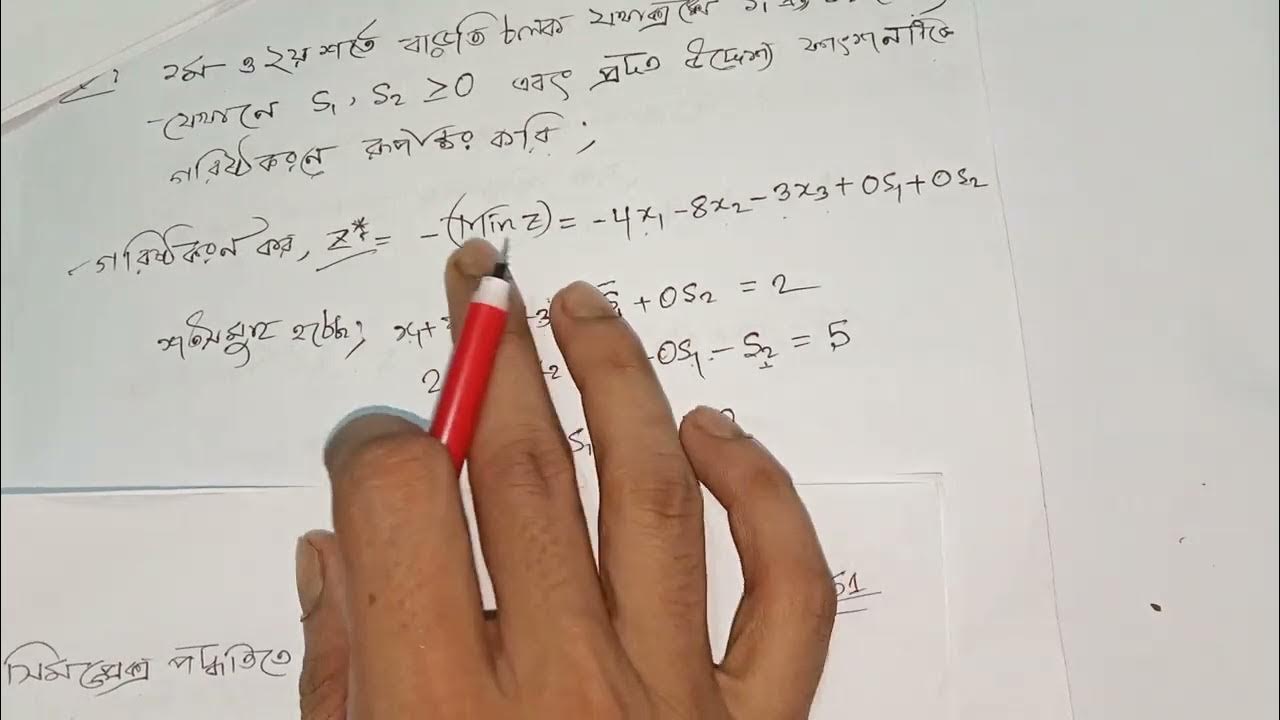 ১ম ও ২য় শর্তে বাড়তি চলক যথাক্রমে
যেখানে S₁, S₂ ≥ 0 এবং প্রদত্ত উদ্দেশ্য ফাংশনটিকে
গরিষ্ঠকরণে রূপান্তর করি ;
গরিষ্ঠকরণ কর, Z* = -(Min Z) = -4x₁ - 8x₂ - 3x₃ + 0S₁ + 0S₂
শর্তসমূহ হচ্ছে; x₁+ + 0S₂ = 2
2 0S₁ - S₂ = 5
S₁
51
সিমপ্লেক্স পদ্ধতিতে